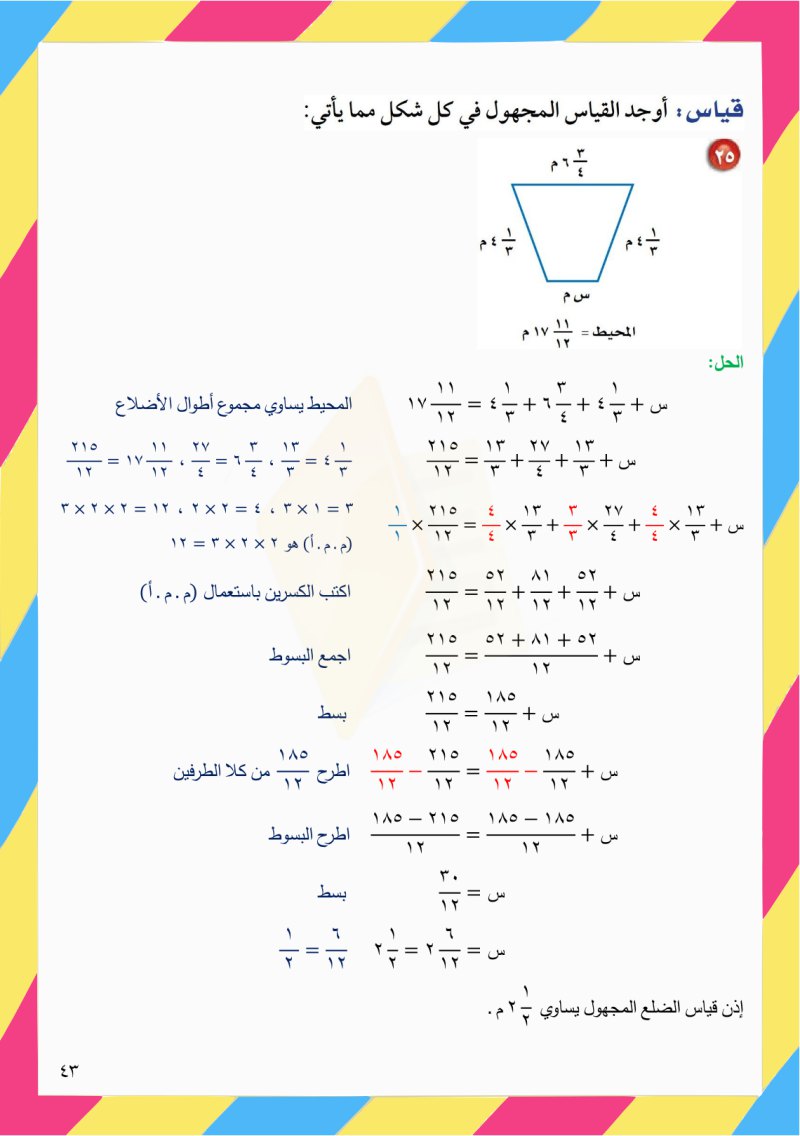 قياس: أوجد القياس المجهول في كل شكل مما يأتي:
٢٥
٦ ٣/٤ م
٤ ١/٣ م
٤ ١/٣ م
س م
المحيط = ١٧ ١١/١٢ م
الحل:
س + ٤ ١/٣ + ٦ ٣/٤ + ٤ ١/٣ = ١٧ ١١/١٢ المحيط يساوي مجموع أطوال الأضلاع
س + ١٣/٣ + ٢٧/٤ + ١٣/٣ = ٢١٥/١٢ ٤ ١/٣ = ١٣/٣ ، ٦ ٣/٤ = ٢٧/٤ ، ١٧ ١١/١٢ = ٢١٥/١٢
س + ١٣/٣ × ٤/٤ + ٢٧/٤ × ٣/٣ + ١٣/٣ × ٤/٤ = ٢١٥/١٢ × ١/١ ٣ = ١ × ٣ ، ٤ = ٢ × ٢ ، ١٢ = ٢ × ٢ × ٣
(م . م . أ) هو ٢ × ٢ × ٣ = ١٢
س + ٥٢/١٢ + ٨١/١٢ + ٥٢/١٢ = ٢١٥/١٢ اكتب الكسرين باستعمال (م . م . أ)
س + ٥٢ + ٨١ + ٥٢/١٢ = ٢١٥/١٢ اجمع البسوط
س + ١٨٥/١٢ = ٢١٥/١٢ بسط
س + ١٨٥/١٢ − ١٨٥/١٢ = ٢١٥/١٢ − ١٨٥/١٢ اطرح ١٨٥/١٢ من كلا الطرفين
س + ١٨٥ − ١٨٥/١٢ = ٢١٥ − ١٨٥/١٢ اطرح البسوط
س = ٣٠/١٢ بسط
س = ٢ ٦/١٢ = ٢ ١/٢ ٦/١٢ = ١/٢
إذن قياس الضلع المجهول يساوي ٢ ١/٢ م .
٤٣